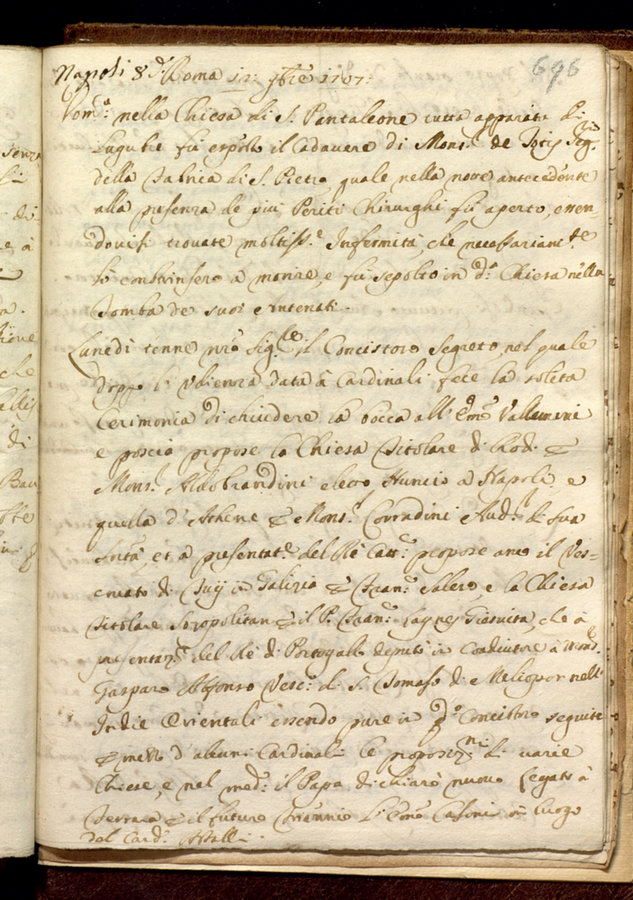 696
Napoli 8 d. Roma 12: 9bre 1707:
Dom.ca nella Chiesa di S. Pantaleone tutta apparata di
Lugubre fù esposto il Cadavere di Mons.r de
della Fabrica di S. Pietro, quale nella notte antecedente
alla presenza de più Periti Chirurghi fù aperto, essen-
dovisi trovate moltiss.e Infermità, che necessariam.te
lo constrinsero a morire, e fù sepolto in d.a Chiesa nella
Tomba de suoi Antenati.
Lunedì tenne nro Sig.re il Concistoro Segreto, nel quale
doppo l'Udienza data à Cardinali, fece la solita
Cerimonia di chiudere la bocca all' Emo Vallemani
e poscia propose la Chiesa Titolare di Rodi &
Mons.r Aldobrandini eletto Nuncio a Napoli, e
quella d'Athene & Mons.r Corradini Aud.re di Sua
Santà, et a presentat.e del Rè Catt.co propose anco il Ves-
covato di Tuij in Galizia & Fran.co e la Chiesa
Titolare & il P. Fran.co Laynes Giesuita, che à
presentaz.e del Rè di Portogallo deputò in Coadiutore à Mons.r
Gasparo Alfonso Vesc.o di S. Tomaso di Meliapor nell'
Indie Orientali essendo pure in d.o Concistoro seguite
& mezzo d'alcuni Cardinali le proposizioni di varie
Chiese, e nel med.o il Papa dichiarò nuovo Legato à
Ferrara & il futuro triennio l'Emo Casoni in luogo
del Card.l Astalli.